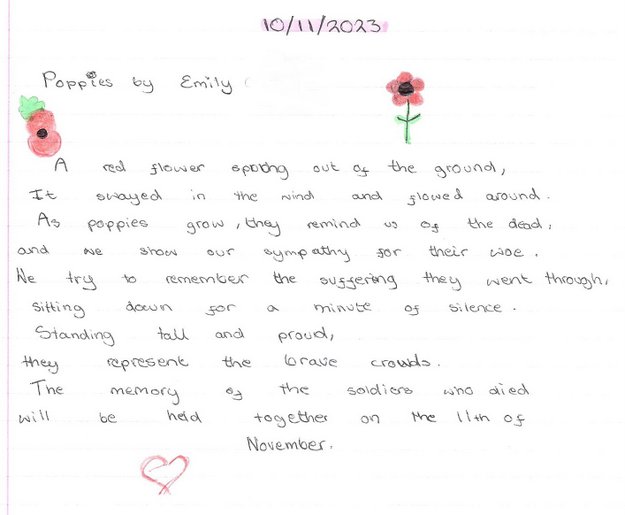 10/11/2023
Poppies by Emily
A red flower spotng out of the ground,
It swayed in the wind and flowed around.
As poppies grow, they remind us of the dead,
and we show our sympathy for their woe.
We try to remember the suffering they went through,
sitting down for a minute of silence.
Standing tall and proud,
they represent the brave crowds.
The memory of the soldiers who died
will be held together on the 11th of
November.